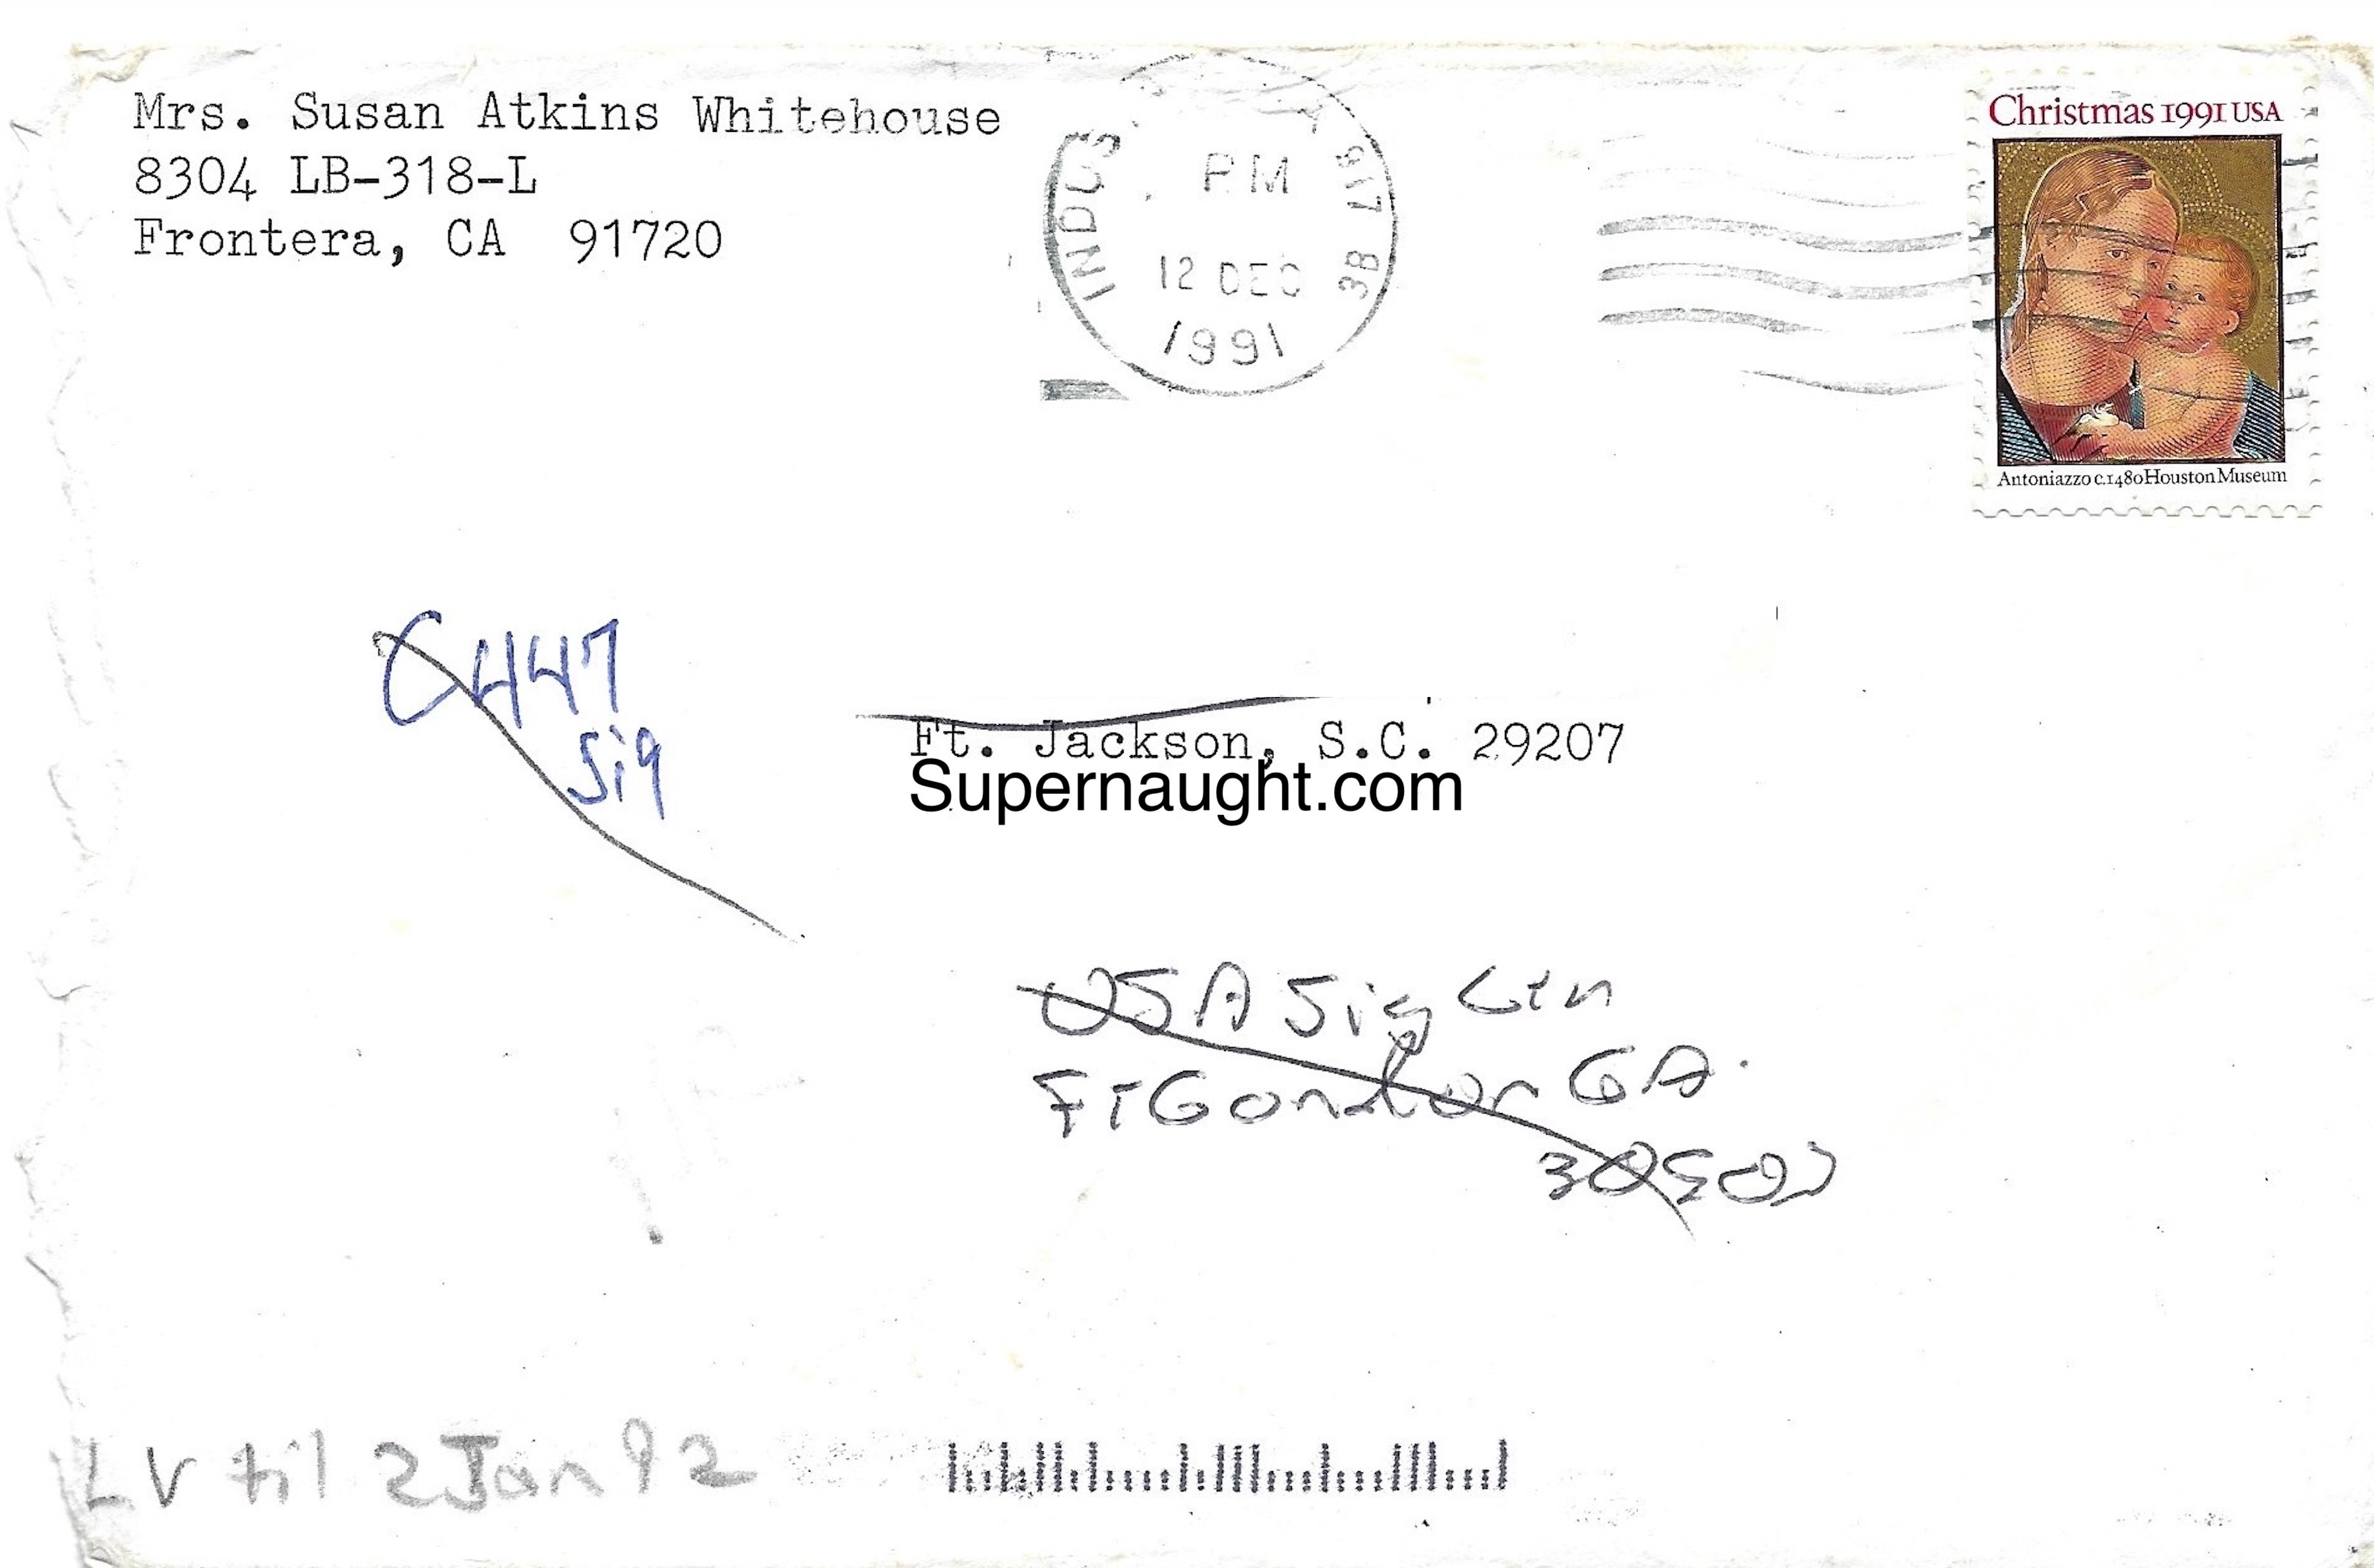 Mrs. Susan Atkins Whitehouse
8304 LB-318-L
Frontera, CA 91720
INDUS
PM
12 DEC
1991
3B 918
Christmas 1991 USA
Antoniazzo c.1480 Houston Museum
C447
Sig
Ft. Jackson, S.C. 29207
Supernaught.com
USA Sig Cen
Ft Gordon GA.
30905
LV til 2 Jan 92